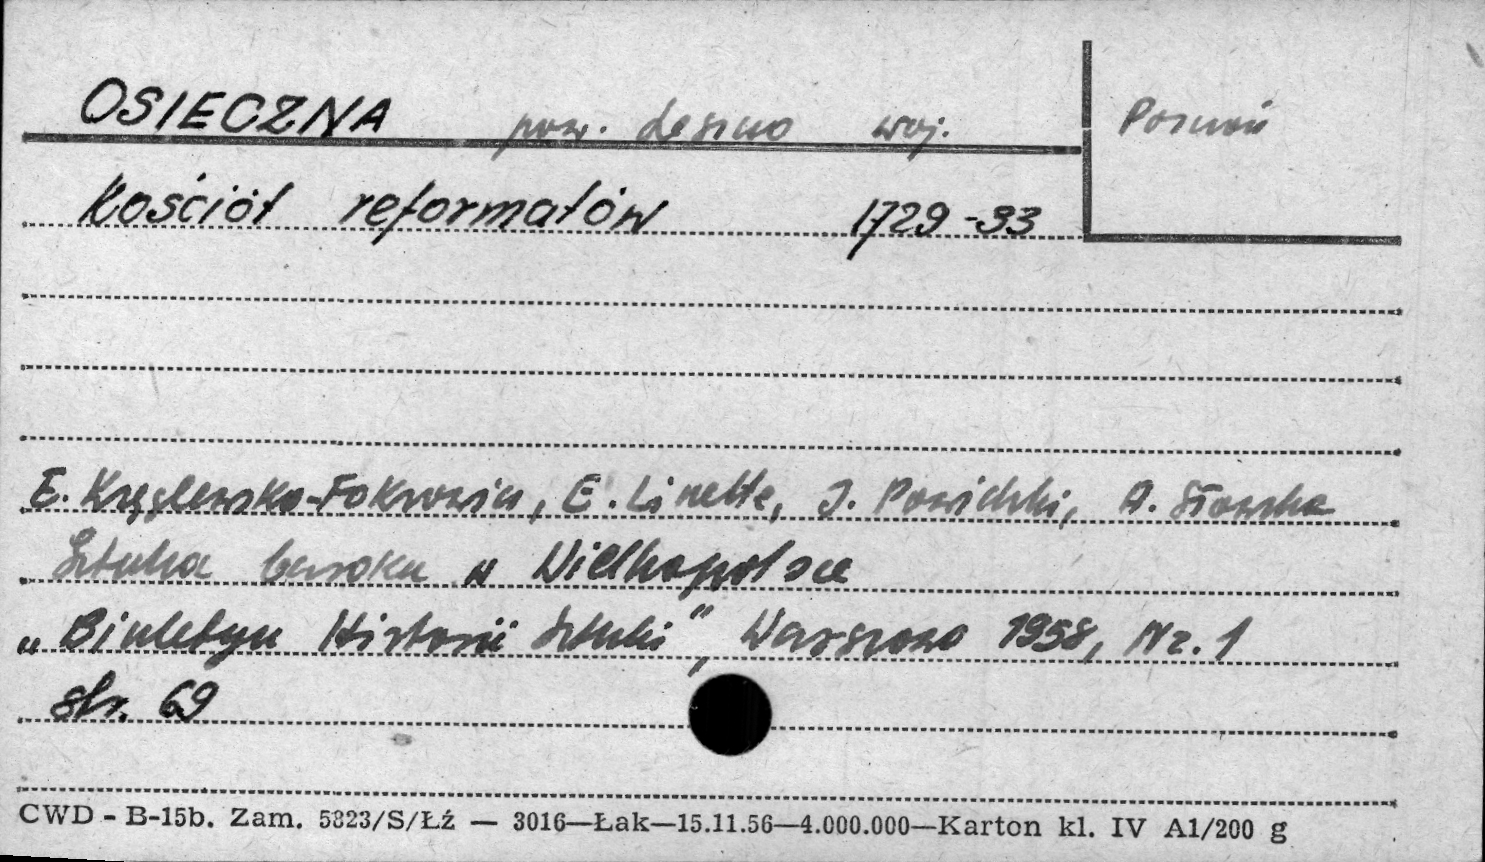 OSIECZNA pow. Leszno woj. Poznań
Kościół reformatów 1729-33
E. Kręglewska-Foksowicz, E. Linette, J. Powidzki, A. Sławska
Sztuka baroku w Wielkopolsce
„Biuletyn Historii Sztuki", Warszawa 1958, Nr. 1
str. 69
CWD - B-15b. Zam. 5323/S/Łź — 3016—Łak—15.11.56—4.000.000—Karton kl. IV A1/200 g